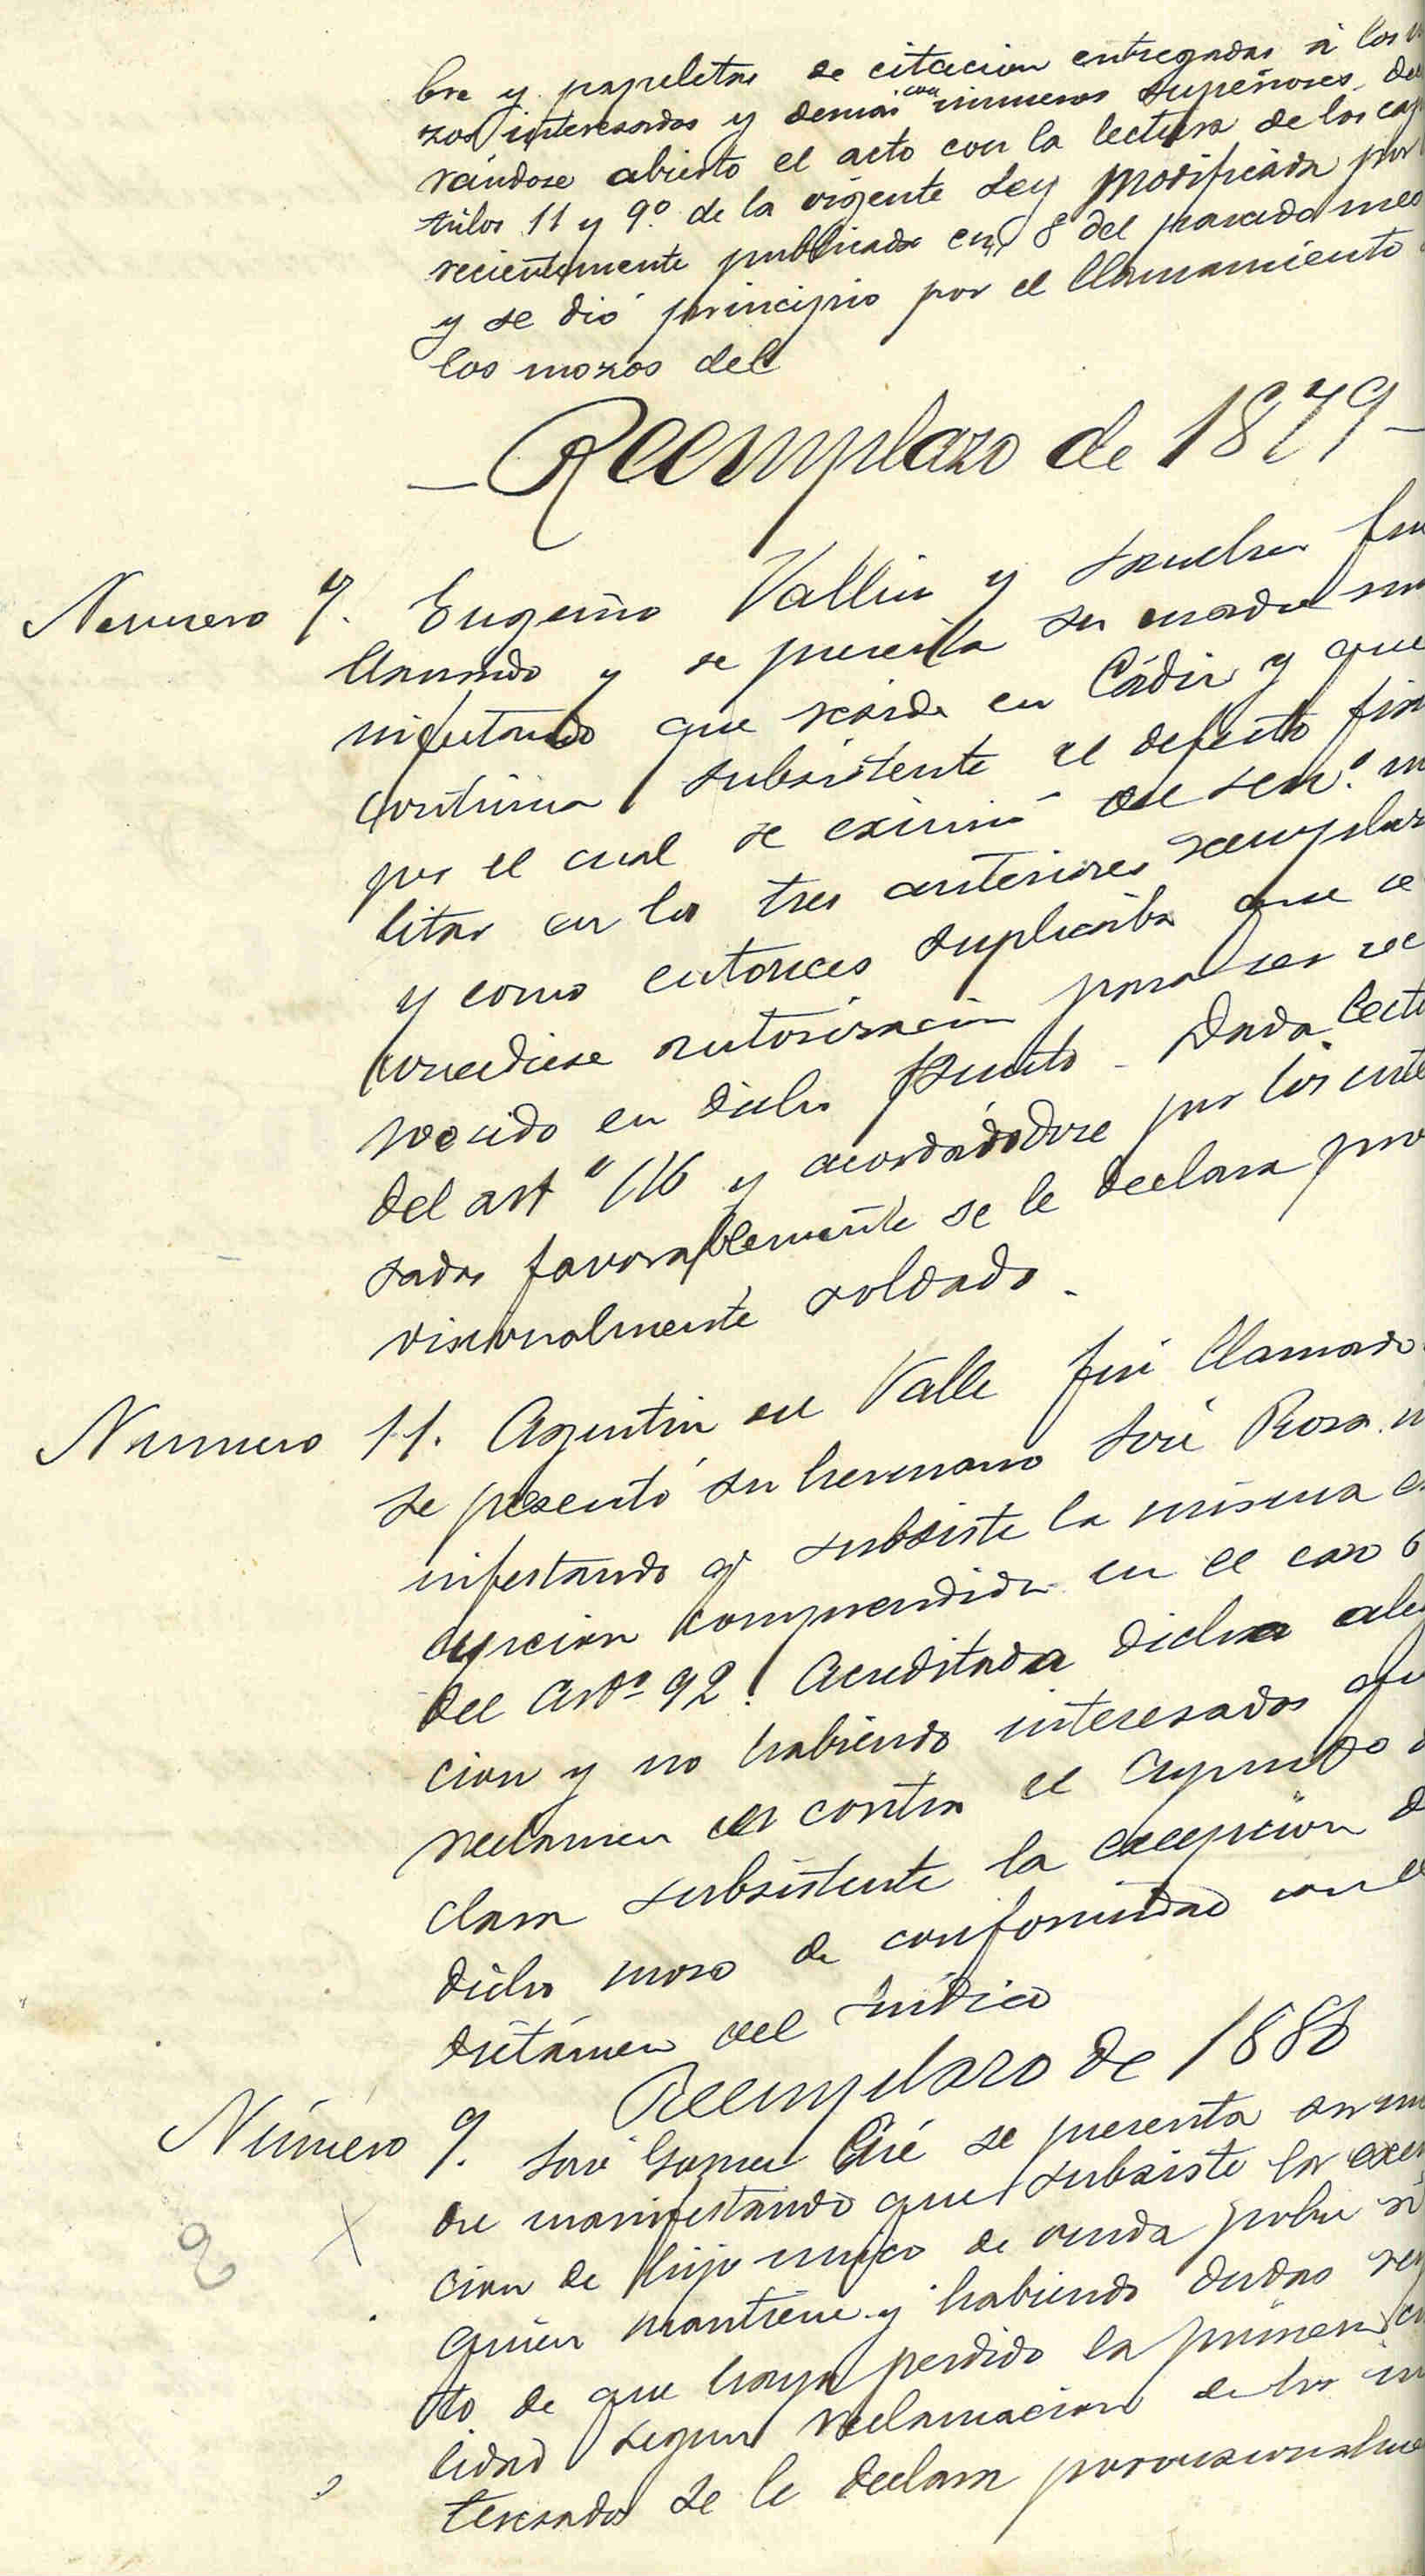 bre y papeletas de citacion entregadas á los
zos interesados y demás con numeros superiores
rándose abierto el acto con la lectura de los cap
tulos 11 y 9º de la vigente Ley modificada por
recientemente publicada en 8 del pasado mes
y se dió principio por el llamamiento
los mozos del
— Reemplazo de 1879 —
Numero 7. Eugenio Vallin y fue
llamado y se presenta su madre ma
nifestando que reside en Cádiz y que
continua subsistente el defecto fisi
por el cual se eximió del serv.º mi
litar en los tres anteriores reemplaz
y como entonces suplicaba que se
concediese autorizacion para ser rec
nocido en dicho punto. Dada lectu
del art º 116 y acordádodose por los inte
sados favorablemente se le declara pro
visionalmente soldado.
Numero 11. Agustin del Valle fué llamado
se presentó su hermano José Rosa m
nifestando q subsiste la misma ex
cepcion comprendida en el caso
del Artº 92. Acreditada dicha aleg
cion y no habiendo interesados que
reclamen en contra el Ayunto d
clara subsistente la excepcion d
dicho mozo de conformidad con el
dictámen del Sindico
Reemplazo de 1880
Número 9. José Gomez se presenta su ma
dre manifestando que subsiste la excep
cion de hijo unico de viuda pobre á
quien mantiene y habiendo dudas res
to de que haya perdido la primera
lidad segun reclamacion de los in
teresados se le declara provisionalme